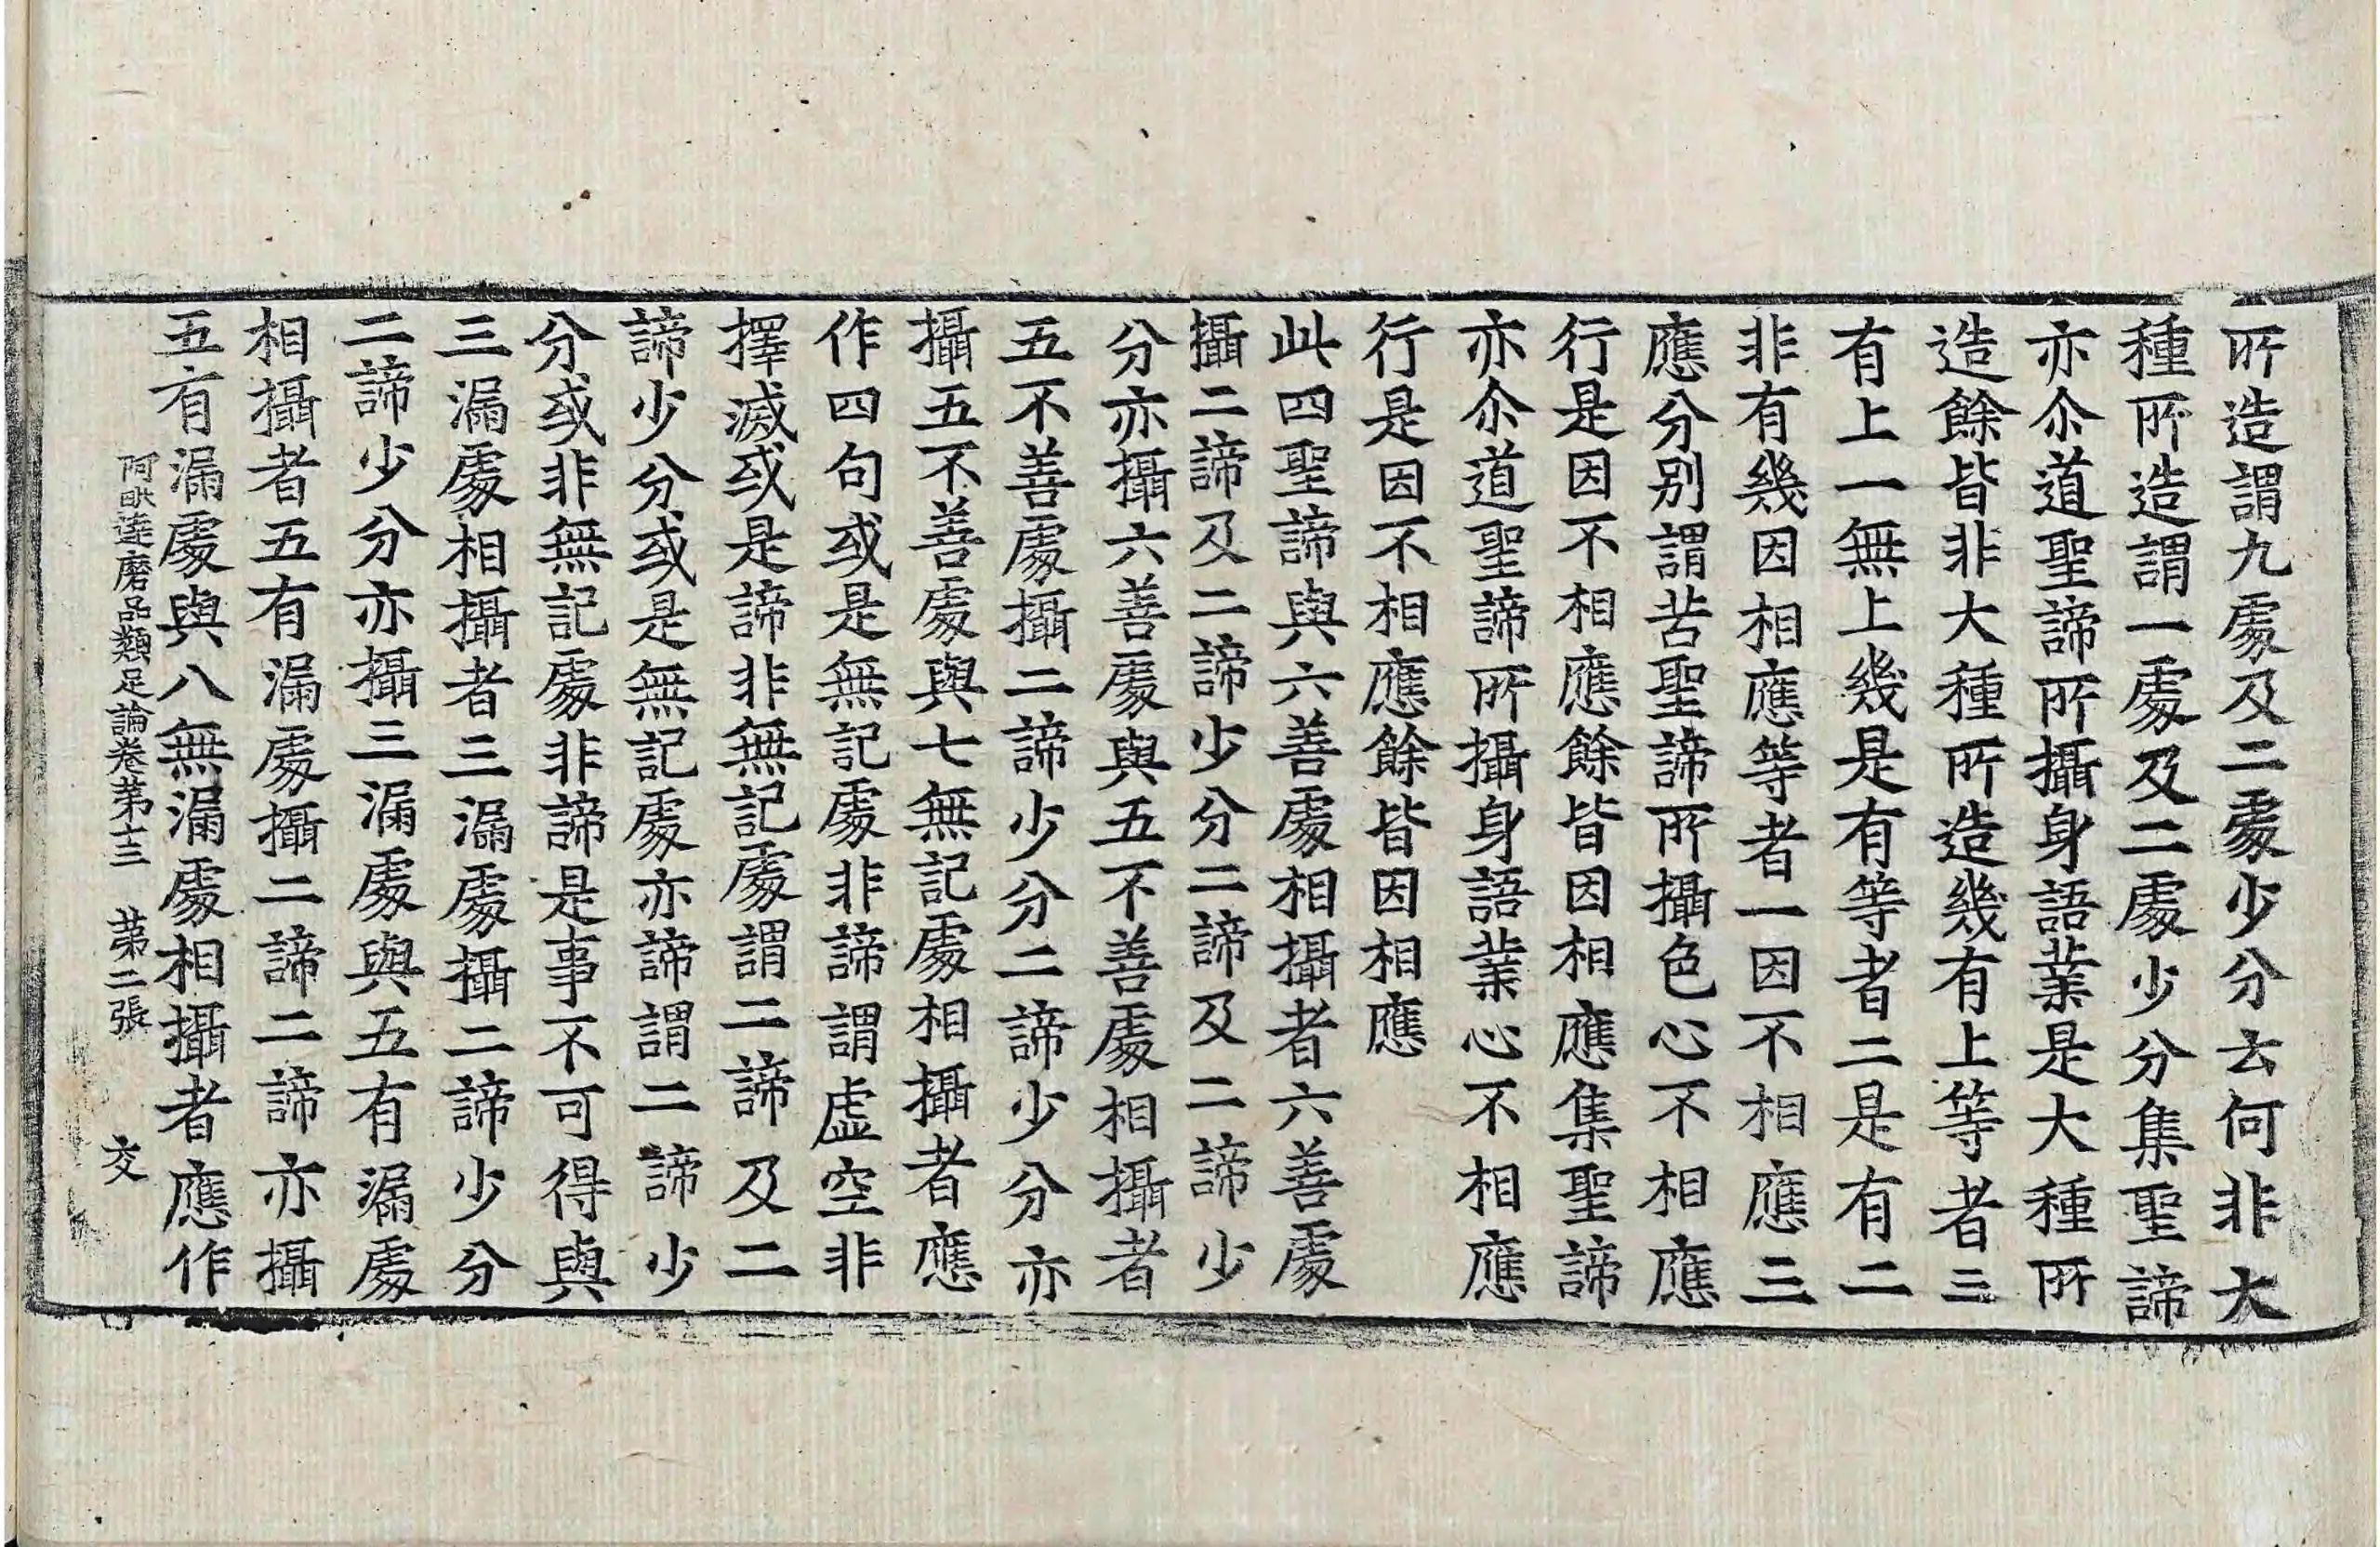 所造謂九處及二處少分去何非大
種所造謂一處及二處少分集聖諦
亦尒道聖諦所攝身語業是大種所
造餘皆非大種所造幾有上等者三
有上一無上幾是有等者二是有二
非有幾因相應等者一因不相應三
應分別謂苦聖諦所攝色心不相應
行是因不相應餘皆因相應集聖諦
亦尒道聖諦所攝身語業心不相應
行是因不相應餘皆因相應
此四聖諦與六善處相攝者六善處
攝二諦及二諦少分二諦及二諦少
分亦攝六善處與五不善處相攝者
五不善處攝二諦少分二諦少分亦
攝五不善處與七無記處相攝者應
作四句或是無記處非諦謂虛空非
擇滅或是諦非無記處謂二諦及二
諦少分或是無記處亦諦謂二諦少
分或非無記處非諦是事不可得與
三漏處相攝者三漏處攝二諦少分
二諦少分亦攝三漏處與五有漏處
相攝者五有漏處攝二諦二諦亦攝
五有漏處與八無漏處相攝者應作
阿毗達磨品類足論卷第十三 第二張 交